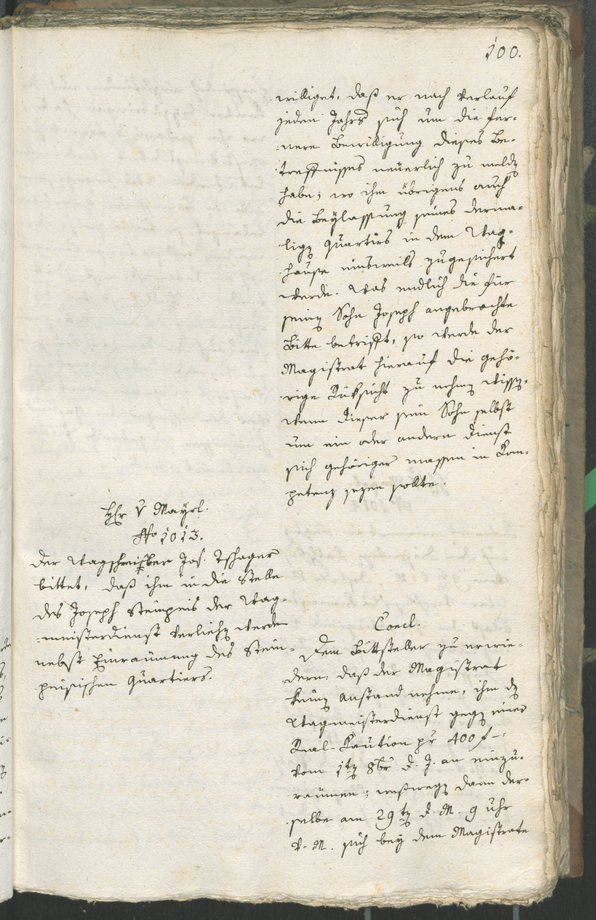 100.
williget, daß er nach Verlauf
jeden Jahrs sich um die fer-
nere Bewilligung dieses Be-
treffnisses neuerlich zu meldẽ
habe; wo ihm übrigens auch
die Beylassung seines derma-
ligẽ Quartirs in dem Wag-
hause einsweils zugesichert
werde. Was endlich die für
seinẽ Sohn Joseph angebrachte
Bitte betrifft, so werde der
Magistrat hierauf die gehö-
rige Rüksicht zu nehmẽ wissẽ,
wenn dieser sein Sohn selbst
um ein oder andern Dienst
sich gehöriger massen in Kom-
petenz sezen sollte.
Hr v Mayrl.
No 1013.
Der Wagschreiber Jos. Tschager
bittet, daß ihm in die Stelle
des Joseph Steinpeis der Wag-
meisterdienst verliehẽ werde
nebst Einraumung des Stein-
peisischen Quartiers.
Concl.
Dem Bittsteller zu erwie-
dern: daß der Magistrat
keinẽ Anstand nehme, ihm dẽ
Wagmeisterdienst gegẽ einer
Real-Kaution pr 400 f
vom 1tẽ 8br d. J. an einzu-
raumen; weßwegẽ dann der-
selbe am 29tẽ d. M. 9 Uhr
V. M. sich bey dem Magistrate